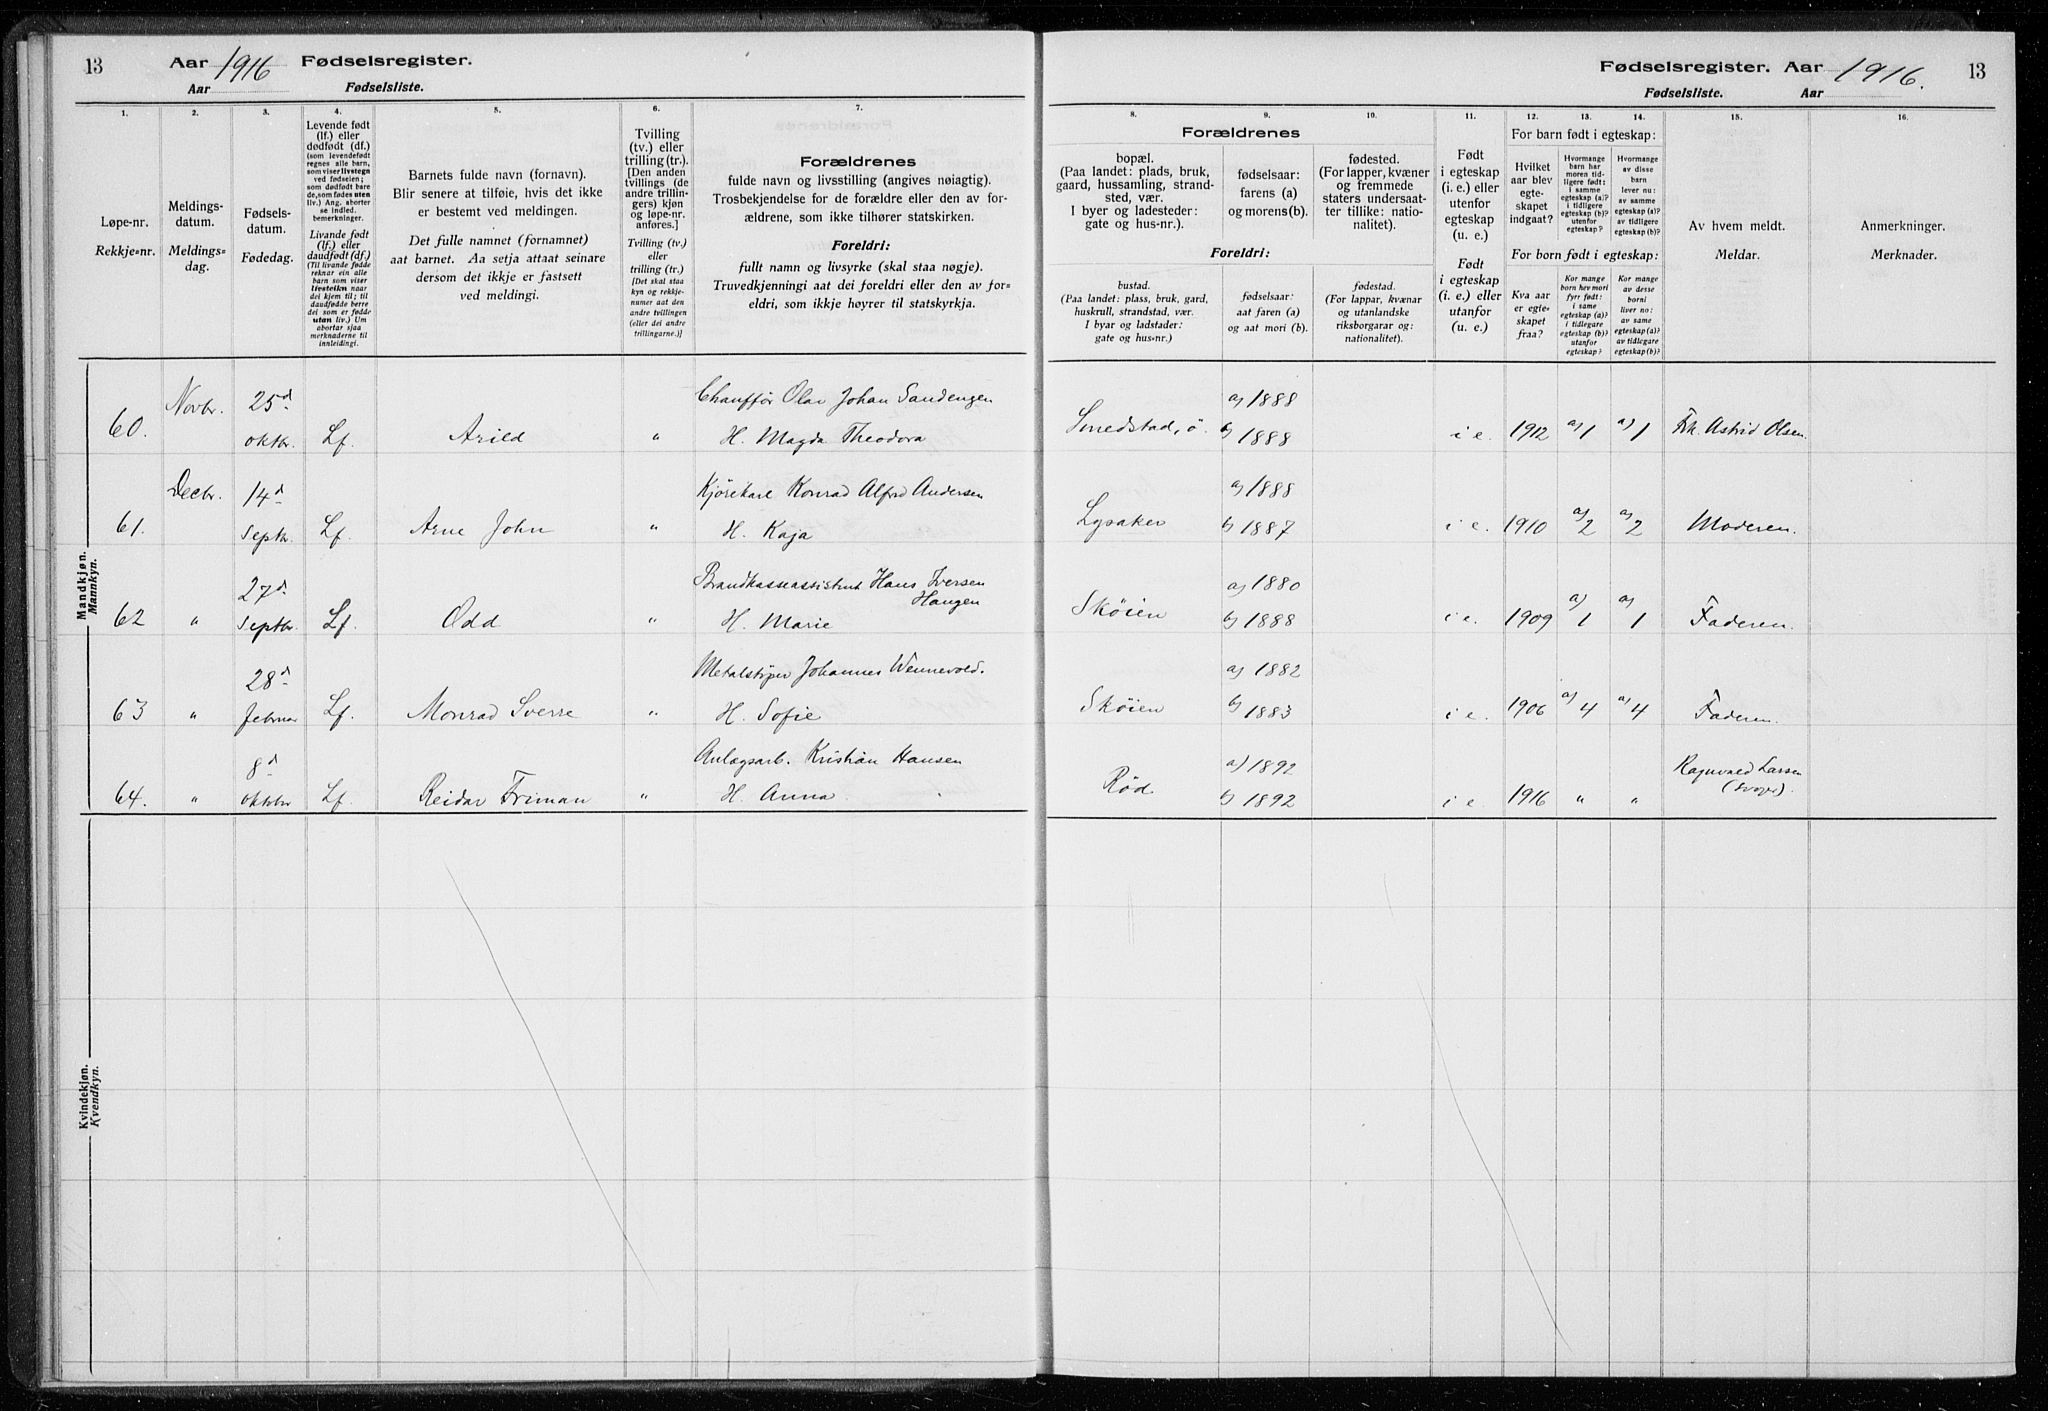 13 Aar 1916 Fødselsregister.
Aar Fødselsliste.
Fødselsregister. Aar 1916. 13
Fødselsliste. Aar
1. 2. 3. 4. 5. 6. 7.
Løpe-nr.
Rekkje-nr.
Meldings-
datum.
Meldings-
dag.
Fødsels-
datum.
Fødedag.
Levende født
(lf.) eller
dødfødt (df.)
(som levendefødt
regnes alle barn,
som viser livstegn
ved fødselen;
som dødfødt bare
de, som fødes uten
liv.) Ang. aborter
se indled.
bemerkninger.
Livande født
(lf.) eller
daudfødt (df.)
(Til livande fødde
reknar ein alle
barn som viser
livsteikn naar
dei kjem til; til
daudfødde berre
dei som er fødde
utan liv.) Um
abortar sjaa
merknaderne til
innleidingi.
Barnets fulde navn (fornavn).
Blir senere at tilføie, hvis det ikke
er bestemt ved meldingen.
Det fulle namnet (fornamnet)
aat barnet. Aa setja attaat seinare
dersom det ikkje er fastsett
ved meldingi.
Tvilling
(tv.) eller
trilling (tr.).
[Den anden
tvillings (de
andre trillin-
gers) kjøn
og løpe-nr.
anføres.]
Tvilling (tv.)
eller
trilling (tr.)
[Det skal staa
kyn og rekkje-
numer aat den
andre tvillingen
(eller dei andre
trillingarne.)]
Forældrenes
fulde navn og livsstilling (angives nøiagtig).
Trosbekjendelse for de forældre eller den av for-
ældrene, som ikke tilhører statskirken.
Foreldri:
fullt namn og livsyrke (skal staa nøgje).
Truvedkjenningi aat dei foreldri eller den av for-
eldri, som ikkje høyrer til statskyrkja.
8. 9. 10. 11. 12. 13. 14. 15. 16.
Forældrenes
bopæl.
(Paa landet: plads, bruk,
gaard, hussamling, strand-
sted, vær.
I byer og ladesteder:
gate og hus-nr.).
fødselsaar:
farens (a)
og morens (b).
fødested.
(For lapper, kvæner
og fremmede
staters undersaat-
ter tillike: natio-
nalitet).
Foreldri:
bustad.
(Paa landet: plass, bruk, gard,
huskrull, strandstad, vær.
I byar og ladstader:
gate og hus-nr.)
fødselsaar:
aat faren (a)
og aat mori (b).
fødestad.
(For lappar, kvænar
og utanlandske
riksborgarar og:
nationalitet).
Født
i egteskap
(i. e.) eller
utenfor
egteskap
(u. e.)
Født
i egteskap
(i. e.) eller
utanfor
(u. e.)
For barn født i egteskap:
Hvilket
aar blev
egte-
skapet
indgaat?
Hvormange
barn har
moren tid-
ligere født:
i samme
egteskap (a)?
i tidligere
egteskap (b)?
utenfor
egteskap?
Hvormange
av disse
barn
lever nu:
av samme
egteskap (a)?
av tidligere
egteskap (b)?
For born født i egteskap:
Kva aar
er egte-
skapet
fraa?
Kor mange
born hev mori
fyrr født:
i same
egteskap (a)?
i tidlegare
egteskap (b)?
utanfor
egteskap?
Kor mange
av desse
borni
liver no:
av same
egteskap (a)?
av tidlegare
egteskap (b)?
Av hvem meldt.
Meldar.
Anmerkninger.
Merknader.
Mandkjøn.
Mannkyn.
Novbr. 25d Chauffør Olav Johan Sandengen a) 1888
60. oktbr. Lf. Arild " H. Magda Theodora Smedstad, ö. b) 1888 i e. 1912 a) 1 a) 1 Frk. Astrid Olsen.
Decbr. 14d Kjørekarl Konrad Alfred Andersen a) 1888
61. Septbr. Lf. Arne John " H. Kaja Lysaker b) 1887 i e. 1910 a) 2 a) 2 Moderen.
27d Brandkasseassistent Hans Iversen a) 1880
Haugen
62 " Septbr. Lf. Odd " H. Marie Skøien b) 1888 i e. 1909 a) 1 a) 1 Faderen.
28d Metalstøper Johannes Wennevold. a) 1882
63 " februar Lf. Monrad Sverre " H. Sofie Skøien b) 1883 i e. 1906 a) 4 a) 4 Faderen.
8d Anlægsarb. Kristian Hansen a) 1892 Ragnvald Larsen
64. " oktbr Lf. Reidar Friman " H. Anna Rød b) 1892 i e. 1916 " " (svoger).
Kvindekjøn.
Kvendkyn.